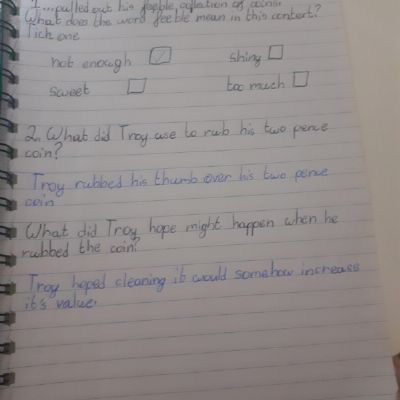 1. ...pulled out his feeble collection of coins.
What does the word feeble mean in this context?
Tick one
not enough ☑ shiny ☐
sweet ☐ too much ☐
2. What did Troy use to rub his two pence
coin?
Troy rubbed his thumb over his two pence
coin
What did Troy hope might happen when he
rubbed the coin?
Troy hoped cleaning it would somehow increase
it's value.